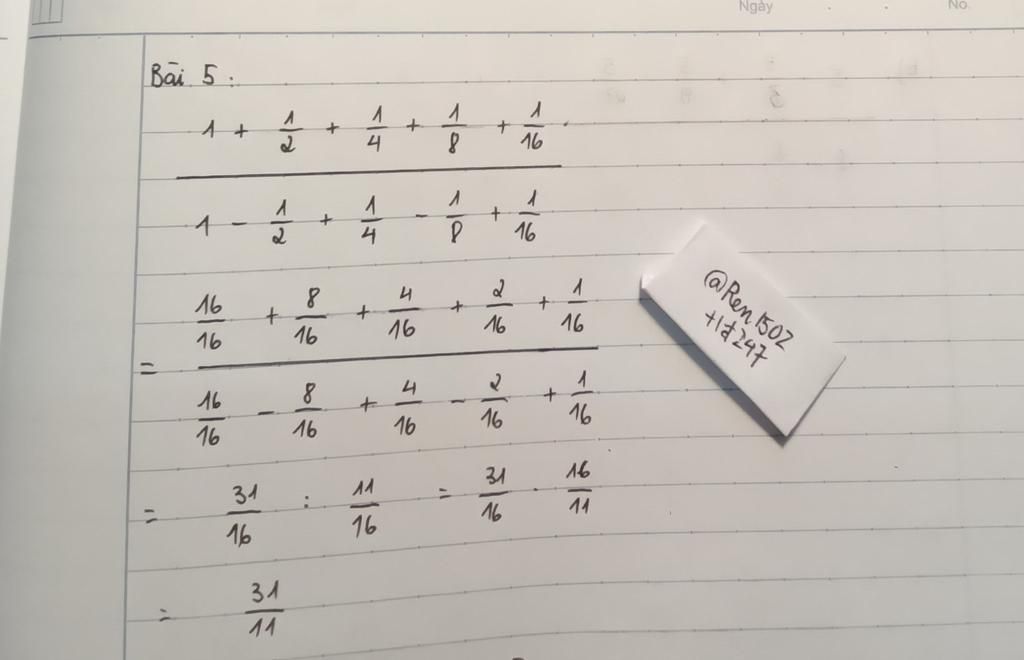 Ngày . . No.
Bài 5 :
1 + 1/2 + 1/4 + 1/8 + 1/16 .
1 - 1/2 + 1/4 - 1/8 + 1/16
16/16 + 8/16 + 4/16 + 2/16 + 1/16
=
16/16 - 8/16 + 4/16 - 2/16 + 1/16
= 31/16 : 11/16 = 31/16 . 16/11
= 31/11
@Ren1502